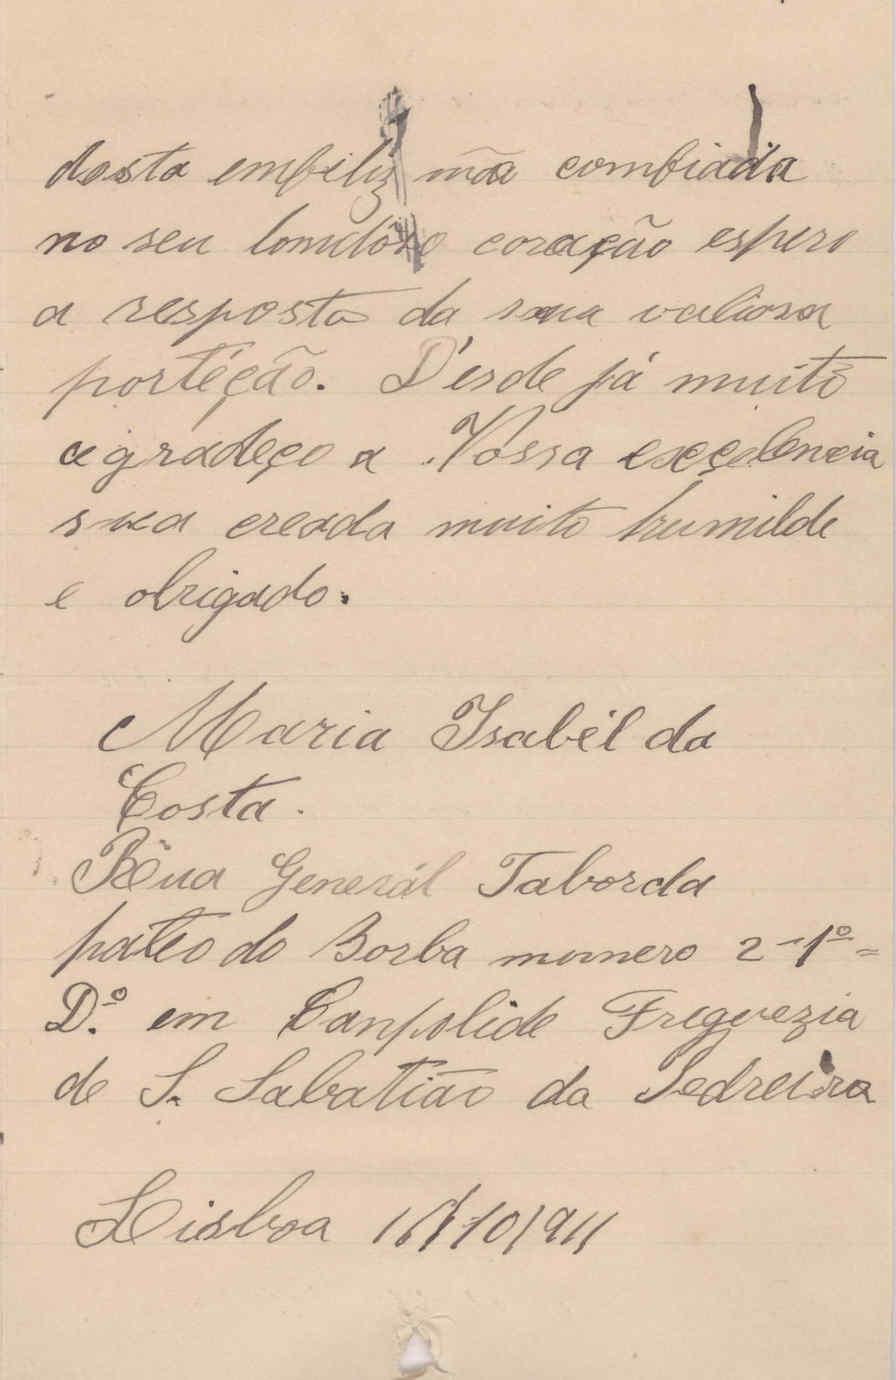 desta emfiliz mãa comfiada
no seu bomdôzo coração espero
a resposta da sua valiosa
portéção. D'esde já muito
agradeço a Vossa excęlencia
sua creada muito humilde
e obrigado.
Maria Isabél da
Costa.
Rua Generál Taborda
pateo do Borba numero 2-1º=
D.º em Canpolide Freguezia
de S. Sabatião da Pedreira
Lisboa 16/10/911